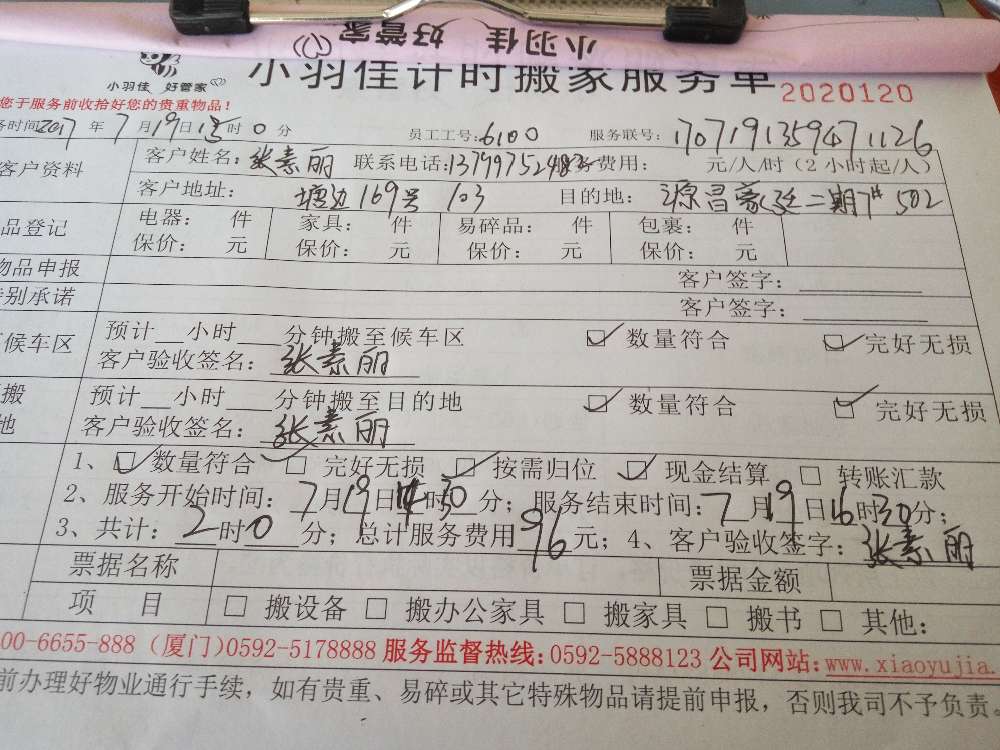 小羽佳 好管家
小羽佳 好管家
小羽佳计时搬家服务单
2020120
您于服务前收拾好您的贵重物品！
务时间2017年7月19日15时0分 员工工号:6100 服务联号:1707191359471126
客户资料
客户姓名:张素丽 联系电话: 费用: 元/人/时（2小时起/人）
客户地址: 塘边169号 103 目的地: 源昌豪廷二期7# 502
品登记
电器: 件 家具: 件 易碎品: 件 包裹: 件
保价: 元 保价: 元 保价: 元 保价: 元
物品申报 客户签字:
别承诺 客户签字:
候车区
预计__小时___分钟搬至候车区 ☑ 数量符合 ☑ 完好无损
客户验收签名: 张素丽
搬
地
预计__小时___分钟搬至目的地 ☑ 数量符合 ☑ 完好无损
客户验收签名: 张素丽
1、☑ 数量符合 ☑ 完好无损 ☑ 按需归位 ☑ 现金结算 □ 转账汇款
2、服务开始时间: 7月19日14时30分; 服务结束时间: 7月19日16时30分;
3、共计: 2时0分; 总计服务费用96元; 4、客户验收签字: 张素丽
票据名称 票据金额
项 目 □ 搬设备 □ 搬办公家具 □ 搬家具 □ 搬书 □ 其他:
00-6655-888 (厦门)0592-5178888 服务监督热线:0592-5888123 公司网站:www.xiaoyujia.
前办理好物业通行手续，如有贵重、易碎或其它特殊物品请提前申报，否则我司不予负责。